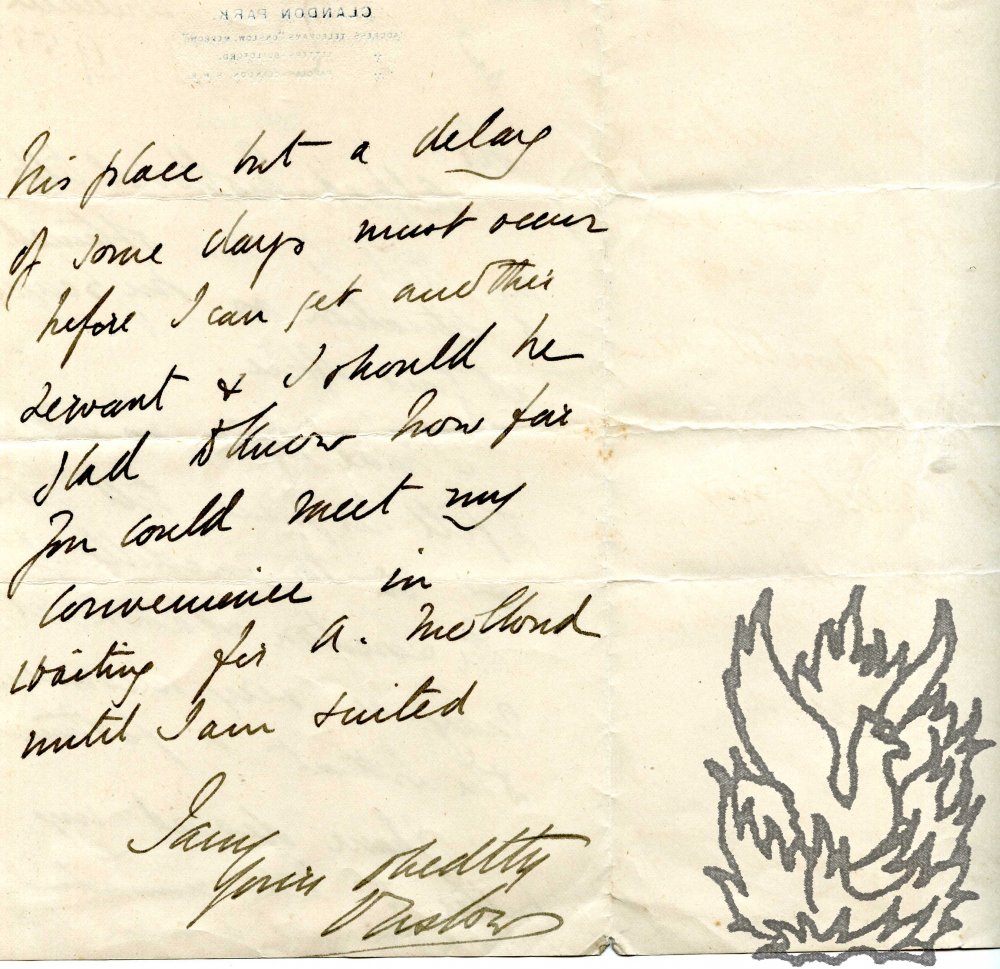 CLANDON PARK.
ADDRESS TELEGRAMS "ONSLOW, MERROW"
" LETTERS GUILDFORD.
his place but a delay
of some days must occur
before I can get another
servant & I should be
glad to know how far
you could meet my
convenience in
waiting for A.
until I am suited
I am
Yours obedtly
Onslow